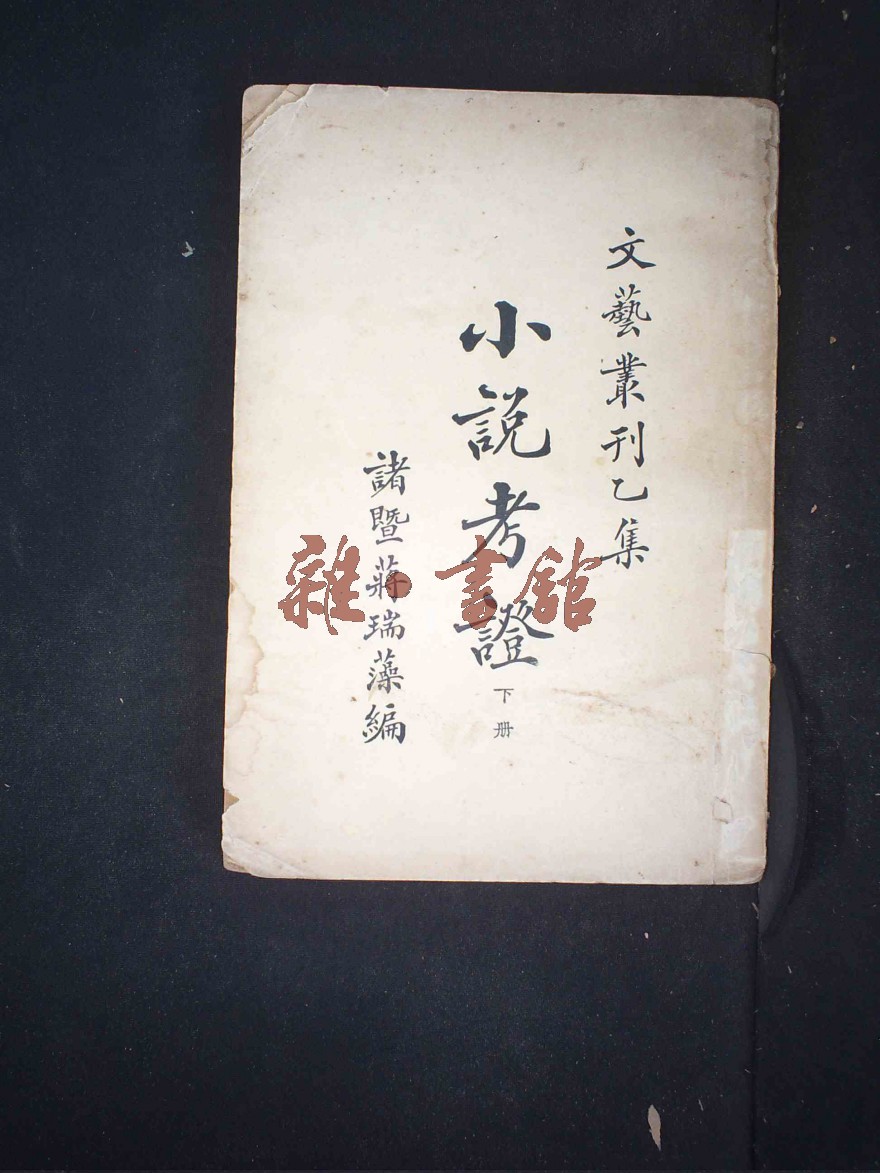 文藝叢刊乙集
小說考證
下册
諸暨蔣瑞藻編
雜·書館